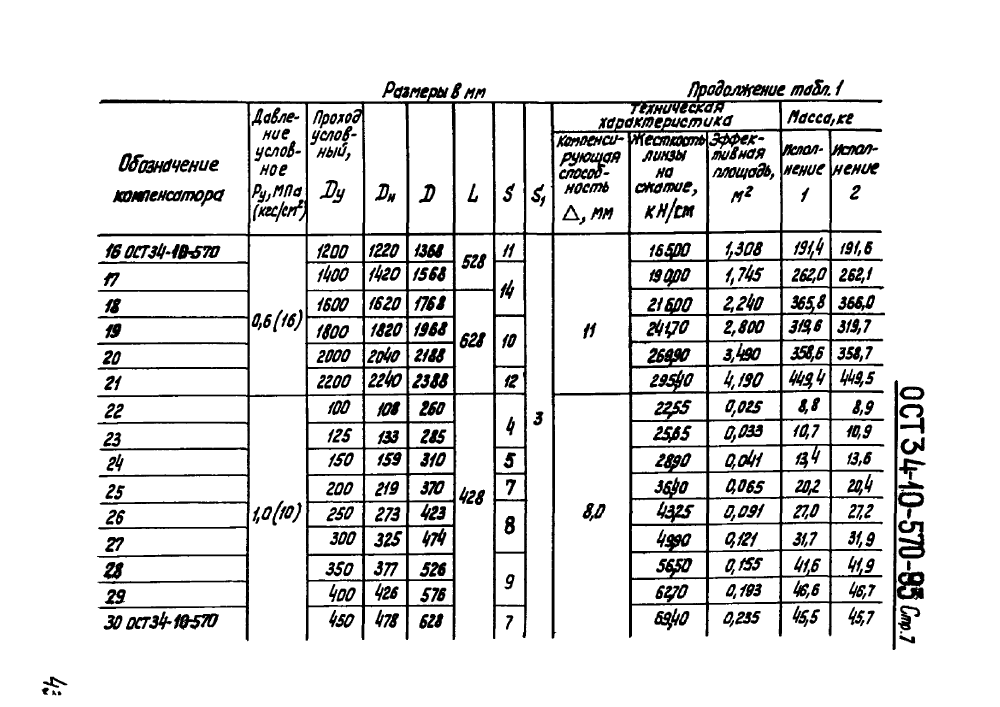 Размеры в мм Продолжение табл. 1
Обозначение компенсатора | Давление условное Ру, МПа (кгс/см²) | Проход условный, Dу | Dн | D | L | S | S₁ | Техническая характеристика | Масса, кг
Компенсирующая способность Δ, мм | Жесткость линзы на сжатие, кН/см | Эффективная площадь, м² | Исполнение 1 | Исполнение 2
16 ОСТ 34-10-570 | 0,6 (16) | 1200 | 1220 | 1368 | 528 | 11 | 3 | 11 | 16500 | 1,308 | 191,4 | 191,6
17 | 1400 | 1420 | 1568 | 14 | 19000 | 1,745 | 262,0 | 262,1
18 | 1600 | 1620 | 1768 | 628 | 21600 | 2,240 | 365,8 | 366,0
19 | 1800 | 1820 | 1968 | 10 | 24170 | 2,800 | 319,6 | 319,7
20 | 2000 | 2040 | 2188 | 26890 | 3,490 | 358,6 | 358,7
21 | 2200 | 2240 | 2388 | 12 | 29540 | 4,190 | 449,4 | 449,5
22 | 1,0 (10) | 100 | 108 | 260 | 428 | 4 | 8,0 | 2255 | 0,025 | 8,8 | 8,9
23 | 125 | 133 | 285 | 2565 | 0,033 | 10,7 | 10,9
24 | 150 | 159 | 310 | 5 | 2890 | 0,041 | 13,4 | 13,6
25 | 200 | 219 | 370 | 7 | 3640 | 0,065 | 20,2 | 20,4
26 | 250 | 273 | 423 | 8 | 4325 | 0,091 | 27,0 | 27,2
27 | 300 | 325 | 474 | 4990 | 0,121 | 31,7 | 31,9
28 | 350 | 377 | 526 | 9 | 5650 | 0,155 | 41,6 | 41,9
29 | 400 | 426 | 576 | 6270 | 0,193 | 46,6 | 46,7
30 ОСТ 34-10-570 | 450 | 478 | 628 | 7 | 6940 | 0,235 | 45,5 | 45,7
ОСТ 34-10-570-85 Стр. 7